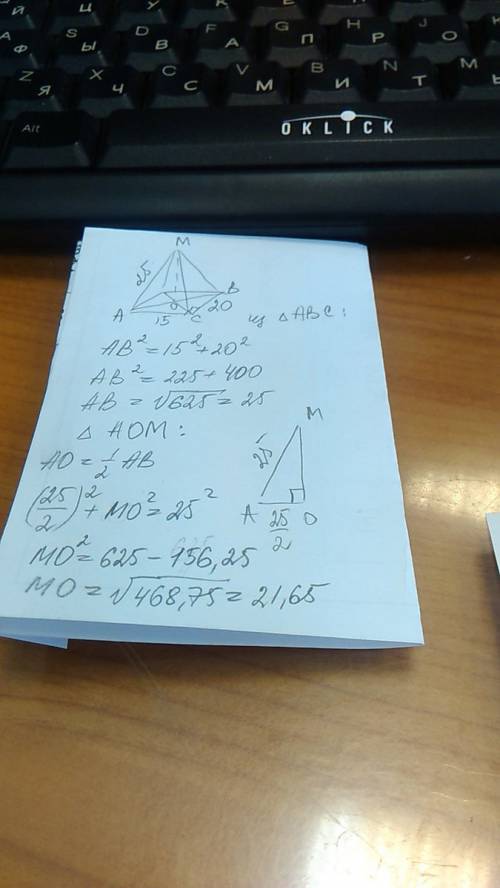 Й Ц У
A S D F G H J
Ф Ы В А П Р О
Z X C V B N M
Я Ч С М И Т Ь
Alt
OKLICK
M
25
A 15 O C 20 B
из △ABC:
AB² = 15² + 20²
AB² = 225 + 400
AB = √625 = 25
△ AOM:
AO = 1/2 AB
(25/2)² + MO² = 25²
MO² = 625 − 156,25
MO = √468,75 = 21,65
M
25
A 25/2 O